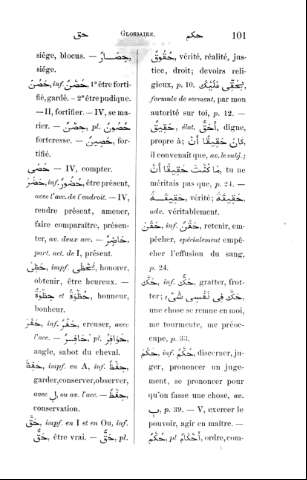 حق
GLOSSAIRE.
حكم
101
siége, blocus. — حِصَارٌ,
siége.
حَصُنَ, inf. حُصْنٌ, 1° être forti-
fié, gardé. — 2° être pudique.
— II, fortifier. — IV, se ma-
rier. — حِصْنٌ, pl. حُصُونٌ,
forteresse. — حَصِينٌ, for-
tifié.
حصى — IV, compter.
حَضَرَ, inf. حُضُورٌ, être présent,
avec l'acc. de l'endroit. — IV,
rendre présent, amener,
faire comparaître, présen-
ter, av. deux acc. — حَاضِرٌ,
part. act. de I, présent.
حَظِىَ, impf. يَحْظَى, honorer,
obtenir, être heureux. —
حُظْوَةٌ et حِظْوَةٌ, honneur,
bonheur.
حَفَرَ, inf. حَفْرٌ, creuser, avec
l'acc. — حَافِرٌ, pl. حَوَافِرُ,
angle, sabot du cheval.
حَفِظَ, impf. en A, inf. حِفْظٌ,
garder, conserver, observer,
avec لِ ou av. l'acc. — حِفْظٌ,
conservation.
حَقَّ, impf. en I et en Ou, inf.
حَقٌّ, être vrai. — حَقٌّ, pl.
حُقُوقٌ, vérité, réalité, jus-
tice, droit; devoirs reli-
gieux, p. 10.
formule de serment, par mon
autorité sur toi, p. 12. —
حَقِيقٌ, élat. أَحَقُّ, digne,
propre à; كَانَ حَقِيقًا أَنْ
il convenait que, av. le subj.;
مَا كُنْتَ حَقِيقًا أَنْ tu ne
méritais pas que, p. 24. —
حَقِيقَةٌ, vérité; حَقِيقَةً
adv. véritablement.
حَقَنَ, inf. حَقْنٌ, retenir, em-
pêcher, spécialement empê-
cher l'effusion du sang,
p. 24.
حَكَّ, inf. حَكٌّ, gratter, frot-
ter; حَكَّ فِى نَفْسِى شَىْءٌ,
une chose se remue en moi,
me tourmente, me préoc-
cupe, p. 33.
حَكَمَ, inf. حُكْمٌ, discerner, ju-
ger, prononcer un juge-
ment, se prononcer pour
qu'on fasse une chose, av.
بِ, p. 39. — V, exercer le
pouvoir, agir en maître. —
حُكْمٌ, pl. أَحْكَامٌ, ordre, com-